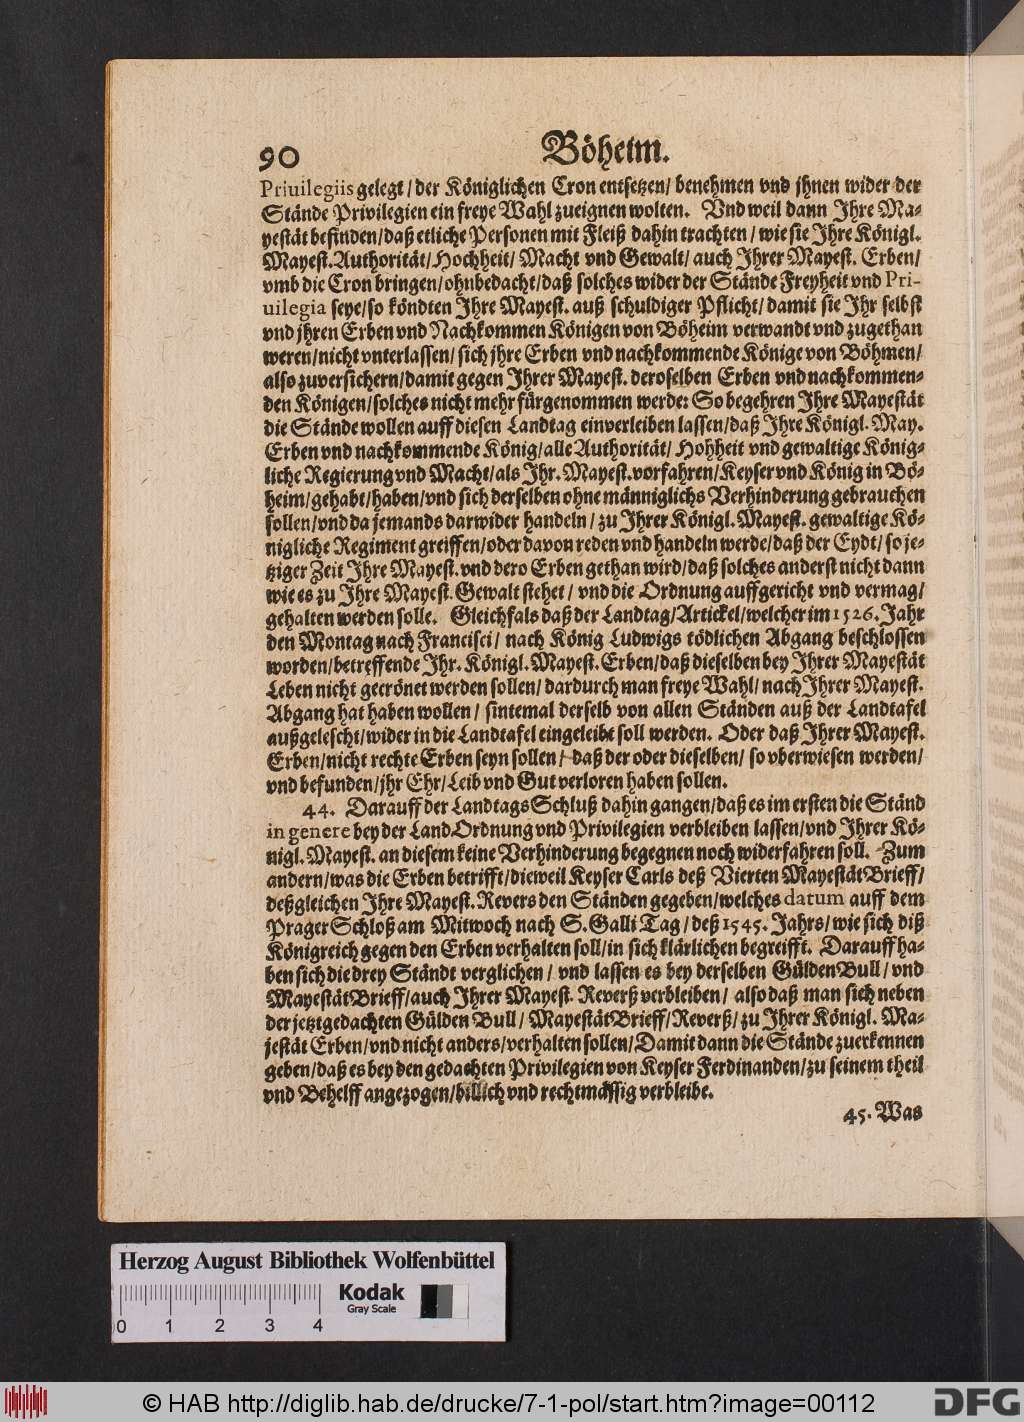 90 Böheim.
Priuilegiis gelegt / der Königlichen Cron entsetzen / benehmen vnd jhnen wider der
Stände Privilegien ein freye Wahl zueignen wolten. Vnd weil dann Ihre Ma-
yestät befinden / daß etliche Personen mit Fleiß dahin trachten / wie sie Ihre Königl.
Mayest. Authorität / Hochheit / Macht vnd Gewalt / auch Ihrer Mayest. Erben /
vmb die Cron bringen / ohnbedacht / daß solches wider der Stände Freyheit vnd Pri-
uilegia seye / so köndten Ihre Mayest. auß schuldiger Pflicht / damit sie Ihr selbst
vnd jhren Erben vnd Nachkommen Königen von Böheim verwandt vnd zugethan
weren / nicht vnterlassen / sich jhre Erben vnd nachkommende Könige von Böhmen /
also zuversichern / damit gegen Ihrer Mayest. deroselben Erben vnd nachkommen-
den Königen / solches nicht mehr fürgenommen werde: So begehren Ihre Mayestät
die Stände wollen auff diesen Landtag einverleiben lassen / daß Ihre Königl. May.
Erben vnd nachkommende König / alle Authorität / Hohheit vnd gewaltige König-
liche Regierung vnd Macht / als Ihr. Mayest. vorfahren / Keyser vnd König in Bö-
heim / gehabt / haben / vnd sich derselben ohne männiglichs Verhinderung gebrauchen
sollen / vnd da jemands darwider handeln / zu Ihrer Königl. Mayest. gewaltige Kö-
nigliche Regiment greiffen / oder davon reden vnd handeln werde / daß der Eydt / so je-
tziger Zeit Ihre Mayest. vnd dero Erben gethan wird / daß solches anderst nicht dann
wie es zu Ihre Mayest. Gewalt stehet / vnd die Ordnung auffgericht vnd vermag /
gehalten werden solle. Gleichfals daß der Landtag / Artickel / welcher im 1526. Jahr
den Montag nach Francisci / nach König Ludwigs tödlichen Abgang beschlossen
worden / betreffende Ihr. Königl. Mayest. Erben / daß dieselben bey Ihrer Mayestät
Leben nicht gecrönet werden sollen / dardurch man freye Wahl / nach Ihrer Mayest.
Abgang hat haben wollen / sintemal derselb von allen Ständen auß der Landtafel
außgelescht / wider in die Landtafel eingeleibt soll werden. Oder daß Ihrer Mayest.
Erben / nicht rechte Erben seyn sollen / daß der oder dieselben / so vberwiesen werden /
vnd befunden / jhr Ehr / Leib vnd Gut verloren haben sollen.
44. Darauff der Landtags Schluß dahin gangen / daß es im ersten die Ständ
in genere bey der Land Ordnung vnd Privilegien verbleiben lassen / vnd Ihrer Kö-
nigl. Mayest. an diesem keine Verhinderung begegnen noch widerfahren soll. Zum
andern / was die Erben betrifft / dieweil Keyser Carls deß Vierten Mayestät Brieff /
deßgleichen Ihre Mayest. Revers den Ständen gegeben / welches datum auff dem
Prager Schloß am Mitwoch nach S. Galli Tag / deß 1545. Jahrs / wie sich diß
Königreich gegen den Erben verhalten soll / in sich klärlichen begreifft. Darauff ha-
ben sich die drey Ständt verglichen / vnd lassen es bey derselben Gülden Bull / vnd
Mayestät Brieff / auch Ihrer Mayest. Reverß verbleiben / also daß man sich neben
der jetztgedachten Gülden Bull / Mayestät Brieff / Reverß / zu Ihrer Königl. Ma-
jestät Erben / vnd nicht anders / verhalten sollen / Damit dann die Stände zuerkennen
geben / daß es bey den gedachten Privilegien von Keyser Ferdinanden / zu seinem theil
vnd Behelff angezogen / billich vnd rechtmässig verbleibe.
45. Was
Herzog August Bibliothek Wolfenbüttel
Kodak
Gray Scale
0 1 2 3 4
© HAB http://diglib.hab.de/drucke/7-1-pol/start.htm?image=00112
DFG